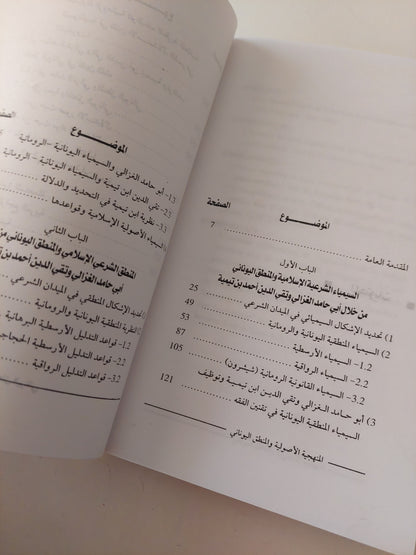 الموضـــــوع
الصفحة
المقدمة العامة
7
الباب الأول
السيمياء الشرعية الاسلامية والمنطق اليوناني
من خلال أبي حامد الغزالي وتقي الدين أحمد بن تيمية
25
1) تحديد الإشكال السيميائي في الميدان الشرعي
49
2) السيمياء المنطقية اليونانية والرومانية
53
1.2- السيمياء الأرسطية
87
2.2- السيمياء الرواقية
105
3.2- السيمياء القانونية الرومانية (شيشرون)
3) أبو حامد الغزالي وتقي الدين ابن تيمية وتوظيف
السيمياء المنطقية اليونانية في تقنين الفقه
121
المنهجية الأصولية والمنطق اليوناني
الموضـــــوع
1.3- أبو حامد الغزالي والسيمياء اليونانية -الرومانية
2.3- تقي الدين ابن تيمية والسيمياء اليونانية - الرومانية
3.3- نظرية ابن تيمية في التحديد والدلالة
السيمياء الأصولية الإسلامية وقواعدها
الباب الثاني
المنطق الشرعي الإسلامي والمنطق اليوناني من
أبي حامد الغزالي وتقي الدين أحمد بن
تحديد الإشكال المنطقي في الميدان الشرعي
النظرية المنطقية اليونانية والرومانية
1.2- قواعد التدليل الأرسطية البرهانية
2.2- قواعد التدليل الأرسطية الحجاجية
3.2- قواعد التدليل الرواقية